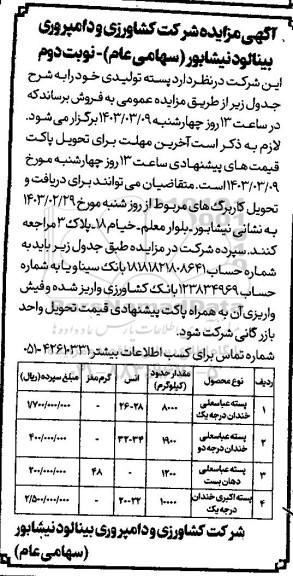 آگهی مزایده شرکت کشاورزی و دامپروری
بینالود نیشابور (سهامی عام) - نوبت دوم
این شرکت در نظر دارد پسته تولیدی خود را به شرح
جدول زیر از طریق مزایده عمومی به فروش برساند که
در ساعت ۱۳ روز چهارشنبه ۱۴۰۳/۰۳/۰۹ برگزار می شود.
لازم به ذکر است آخرین مهلت برای تحویل پاکت
قیمت های پیشنهادی ساعت ۱۳ روز چهارشنبه مورخ
۱۴۰۳/۰۳/۰۹ است. متقاضیان می توانند برای دریافت و
تحویل کاربرگ های مربوط از روز شنبه مورخ ۱۴۰۳/۰۲/۲۹
به نشانی نیشابور ـ بلوار معلم ـ خیام ۱۸ـ پلاک ۳ مراجعه
کنند. سپرده شرکت در مزایده طبق جدول زیر باید به
شماره حساب ۱۸۱۸۱۸۲۱۸۰۸۶۴۱ بانک سینا و یا به شماره
حساب ۱۲۳۸۳۴۹۶۹ بانک کشاورزی واریز شده و فیش
واریزی آن به همراه پاکت پیشنهادی قیمت تحویل واحد
بازرگانی شرکت شود.
شماره تماس برای کسب اطلاعات بیشتر ۴۲۶۱۰۳۳۱-۰۵۱
ردیف نوع محصول مقدار حدود (کیلوگرم) انس گرم مغز مبلغ سپرده (ریال)
۱ پسته عباسعلی خندان درجه یک ۸۰۰۰ ۲۶-۲۸ - ۱/۷۰۰/۰۰۰/۰۰۰
۲ پسته عباسعلی خندان درجه دو ۱۹۰۰ ۳۲-۳۴ - ۴۰۰/۰۰۰/۰۰۰
۳ پسته عباسعلی دهان بست ۱۲۰۰ - ۴۸ ۲۰۰/۰۰۰/۰۰۰
۴ پسته اکبری خندان درجه یک ۱۰۰۰۰ ۲۰-۲۲ - ۲/۵۰۰/۰۰۰/۰۰۰
شرکت کشاورزی و دامپروری بینالود نیشابور
(سهامی عام)